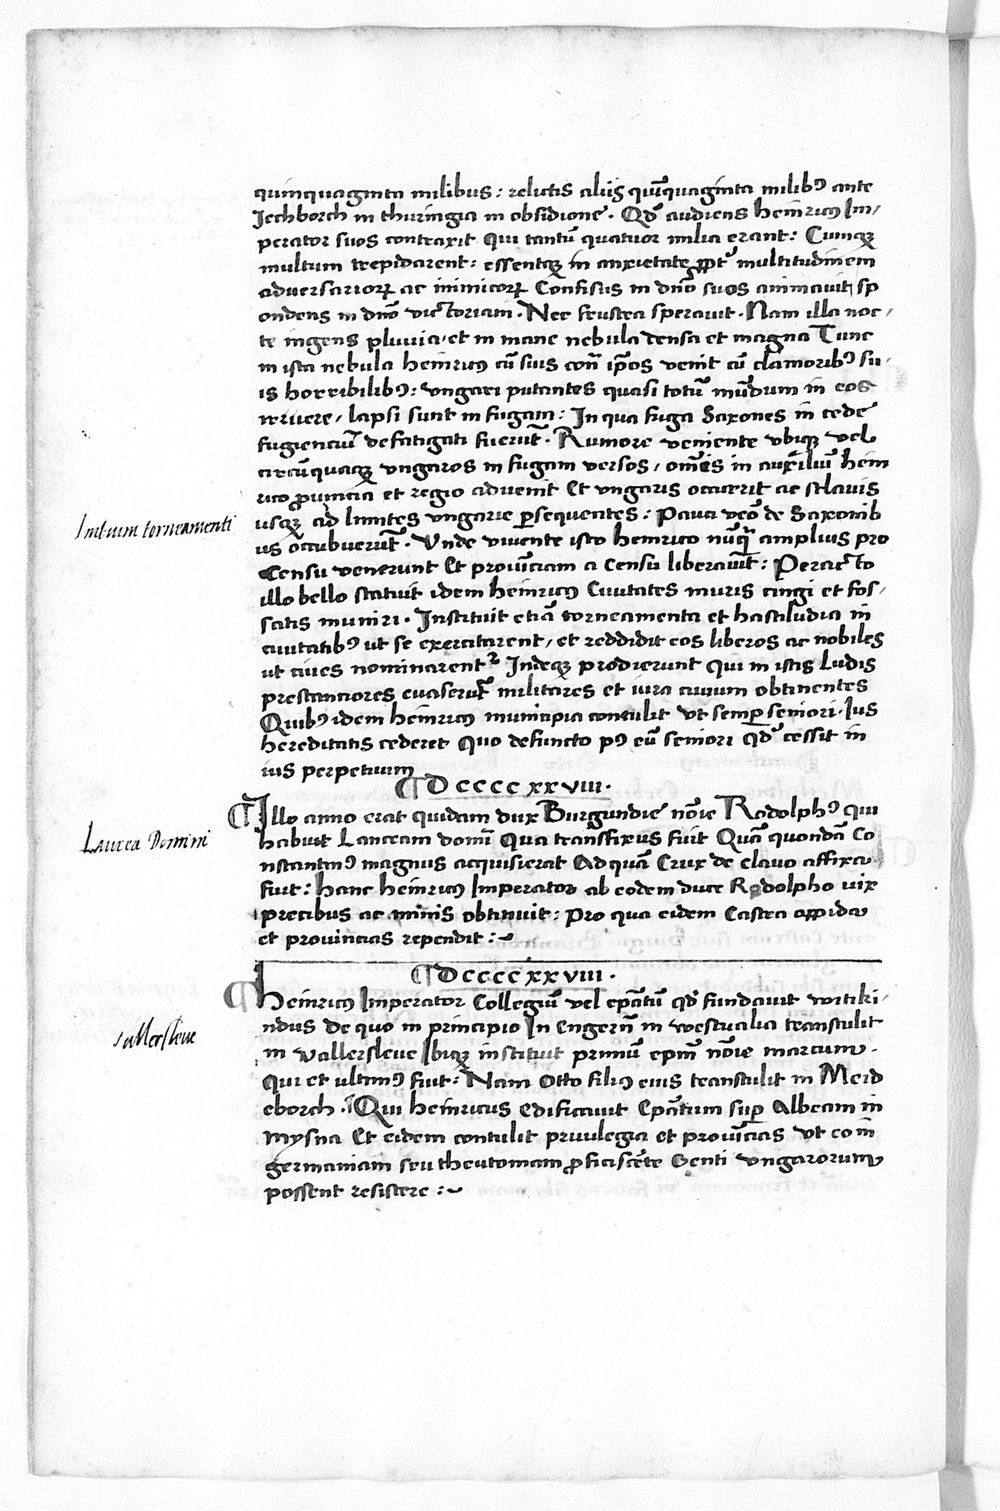 quinquaginta milibus: relictis aliis quīquaginta milibꝰ ante
Jechborch in thuringia in obsidione. Qđ audiens heinricꝰ Im/
perator suos contraxit qui tantū quatuor milia erant: Cumqꝫ
multum trepidarent: essentqꝫ in anxietate ꝓpt̕ multitudinem
adversarioꝝ ac inimicoꝝ Confisus in dn̄o suos animavit sp
ondens in dn̄o victoriam. Nec frustra speravit. Nam illa noc/
te ingens pluvia et in mane nebula densa et magna Tunc
in ista nebula heinricꝰ cū suis con̄ ip̄os venit cū clamoribꝰ su/
is horribilibꝰ: ungari putantes quasi totū mūdum in eos
irruere, lapsi sunt in fugam: In qua fuga Saxones in cede
fugienciū defatigati fuerūt. Rumore veniente ubiqꝫ vel
circūquaqꝫ ungaros in fugam versos, om̄es in auxiliū hein
rico ꝓvincia et regio advenit Et ungaris occurrit ac sclavis
usqꝫ ad limites ungarie ꝑsequentes: Pauci vēo de Saxonib
us occubuerūt. Unde vivente isto heinrico nūqͣ amplius pro
Censu venerunt Et provīciam a censu liberavit: Peracto
illo bello statuit idem heinricꝰ Civitates muris cingi et fos/
satis muniri. Instituit etiā torneamenta et hastiludia in
civitatibꝰ ut se exercitarent, et reddidit eos liberos ac nobiles
ut cives nominarent̉ Indeqꝫ prodierunt qui in istis Ludis
prestanciores evaserūt militares et iura civium obtinentes
Quibꝰ idem heinricꝰ municipia contulit ut semꝑ seniori Ius
hereditatis cederet quo defuncto pꝰ eū seniori qđ cessit in
ius perpetuum
¶ D CCCC XXVIII.
¶ Illo anno erat quidam dux Burgundie nōie Rodolphꝰ qui
habuit Lanceam domī Qua transfixus fuit Quā quondā Co
nstantinꝰ magnus acquisierat Ad quā Crux de clavo affixa
fuit: hanc heinricꝰ Imperator ab eodem duce Rodolpho vix
precibus ac minis obtinuit: Pro qua eidem Castra oppida
et provincias rependit:~
¶ D CCCC XXVIII.
¶ Heinricꝰ Imperator Collegiū vel ep̄atū qđ fundavit witiki/
ndus de quo in principio In Engern̄ in westvalia transtulit
in vallersleve Ibiqꝫ instituit primū epm̄ nōie marcum.
Qui et ultimꝰ fuit: Nam Otto filiꝰ eius transtulit in Meid
eborch. Qui heinricus edificavit Ep̄atum sup̄ Albeam in
Mysna Et eidem contulit privilegia et provīcias ut com̄
germaniam seu theutoniam ꝓficiscēte Genti ungarorum
possent resistere:~
Initium torneamenti
Lancea Domini
vallersleve